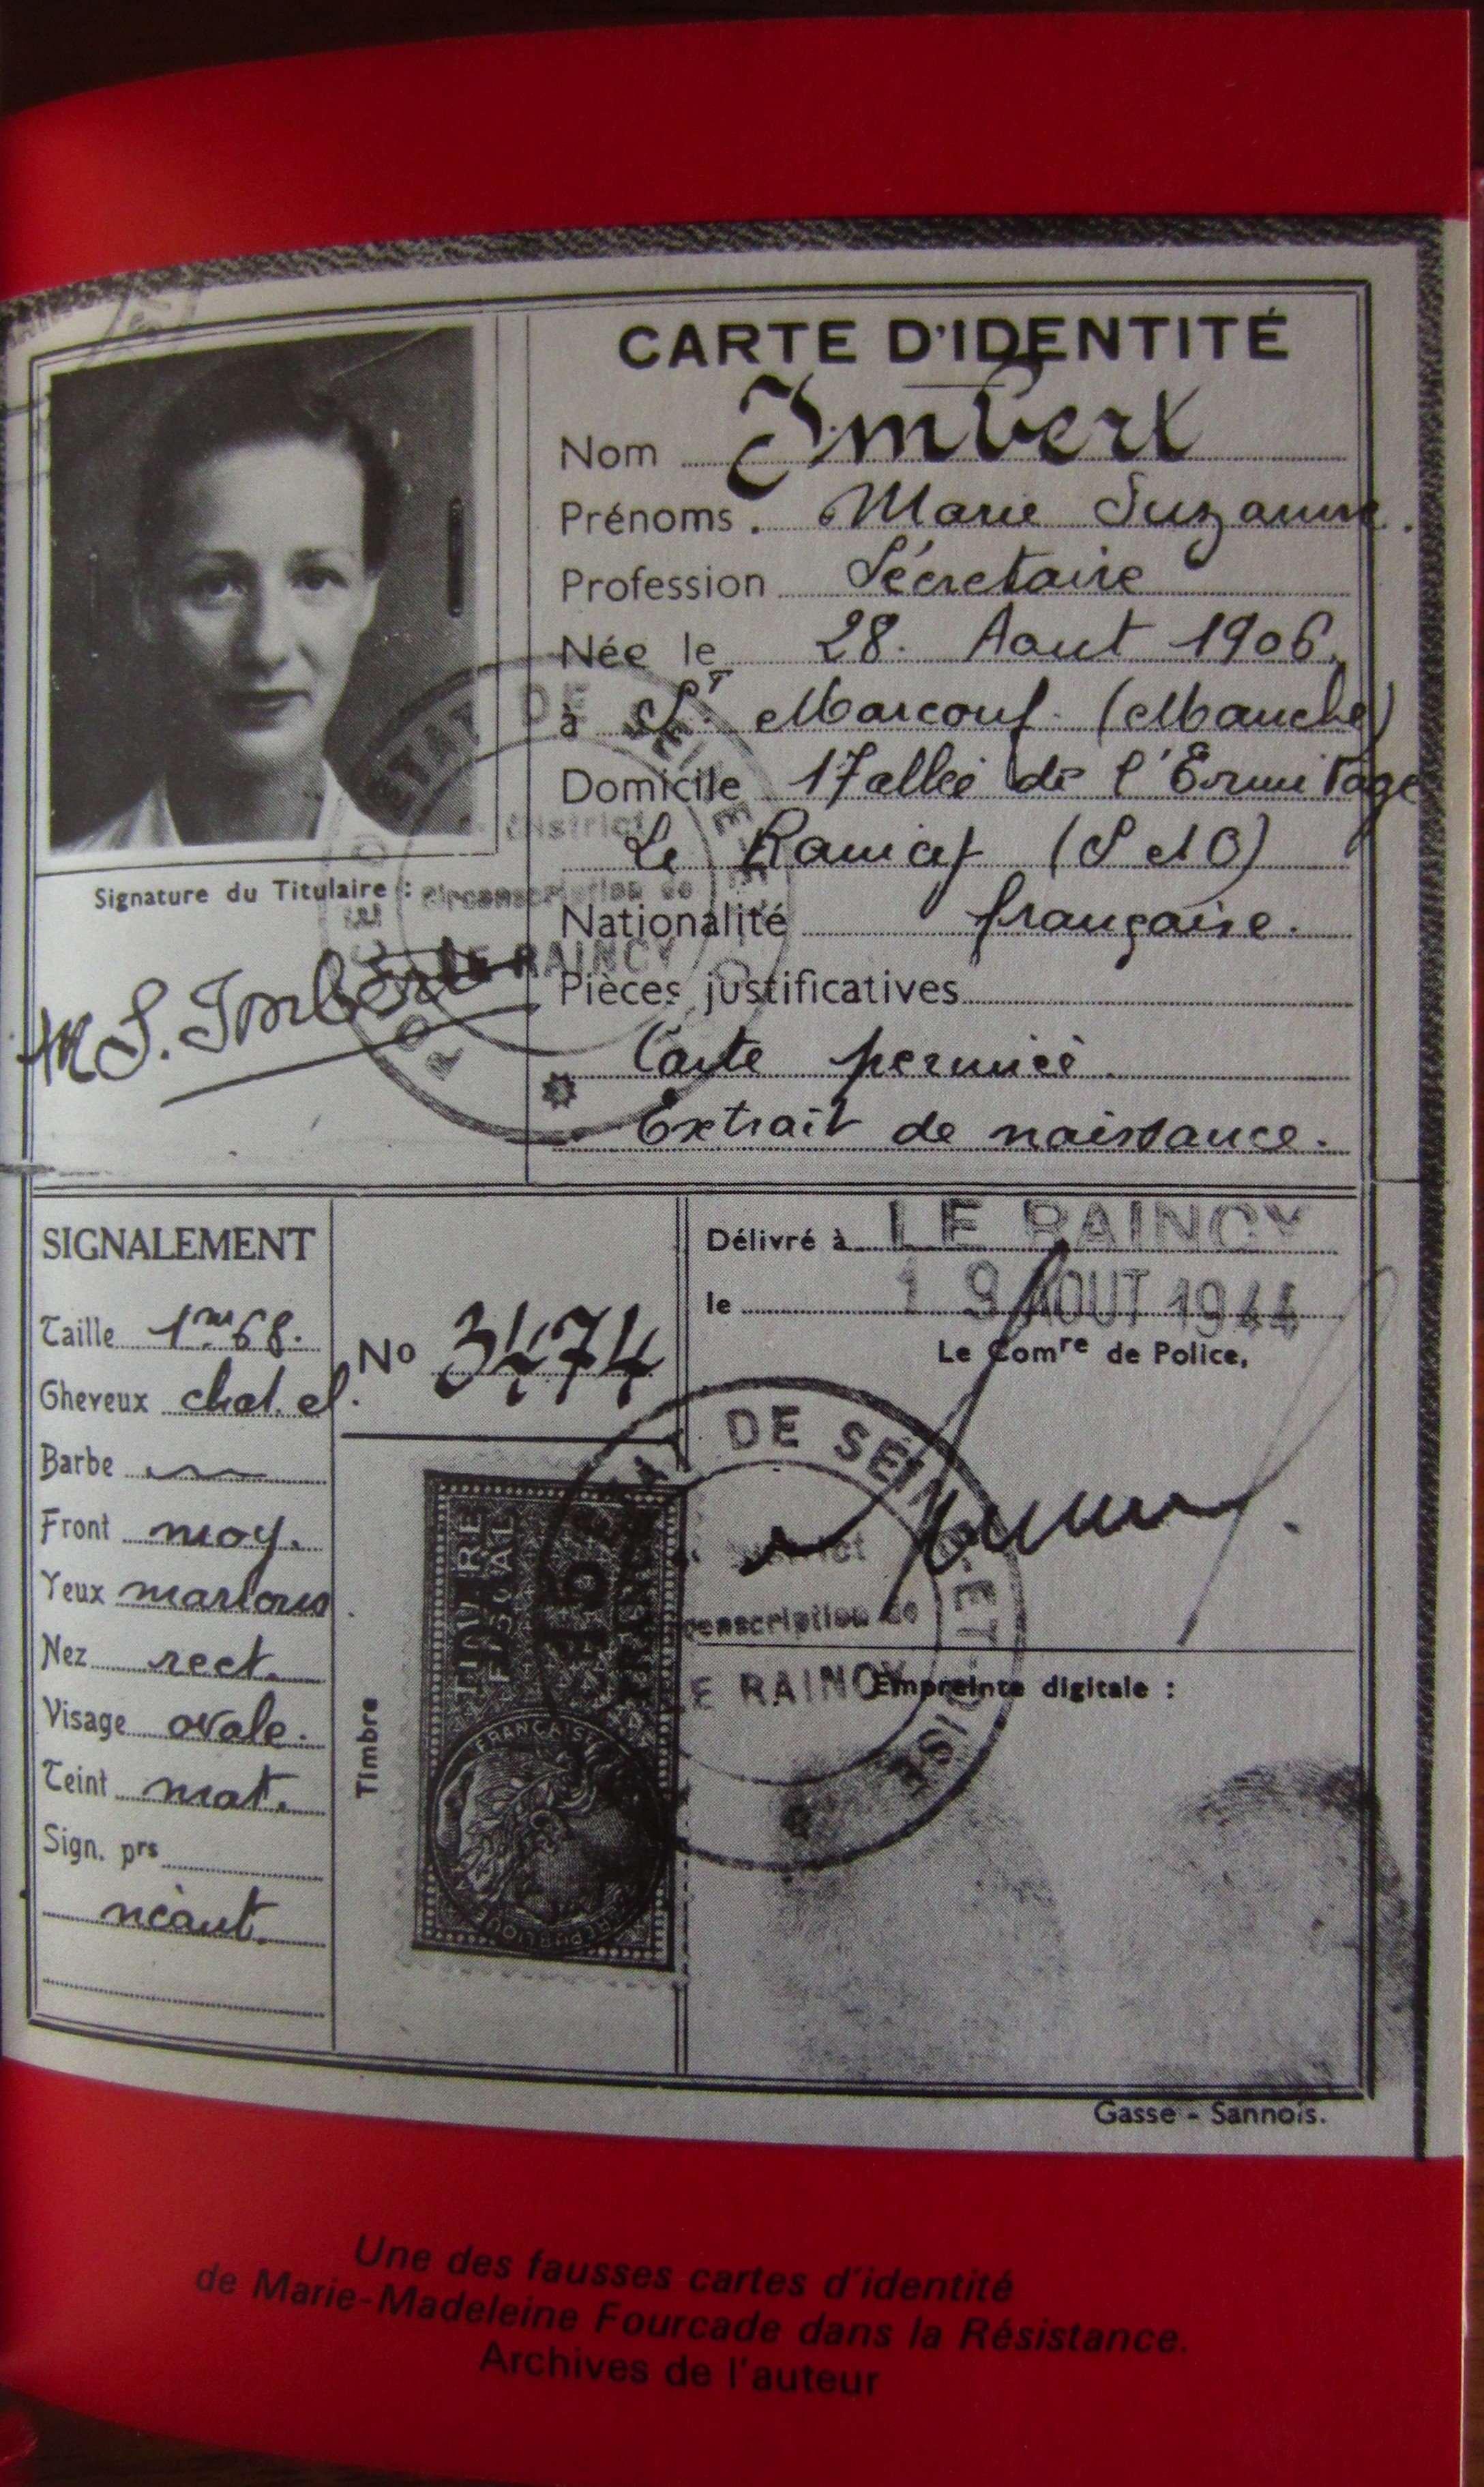 CARTE D'IDENTITÉ
Nom Imbert
Prénoms. Marie Suzanne.
Profession Sécretaire
Née le 28. Aout 1906.
à St Marcouf (Manche)
Domicile 17 allée de l'Ermitage
Le Raincy (S et O)
Nationalité française.
Pièces justificatives
Carte périmée.
Extrait de naissance.
Signature du Titulaire :
M S. Imbert
ETAT DE SEINE ET OISE
District
Circonscription de
LE RAINCY
SIGNALEMENT
Taille 1m68.
Cheveux chat. cl.
Barbe
Front moy.
Yeux marrons
Nez rect.
Visage ovale.
Teint mat.
Sign. prs
néant.
No 3474
Timbre
TIMBRE
FISCAL
15
FRANCS
RÉPUBLIQUE FRANÇAISE
Délivré à LE RAINCY
le 19 AOUT 1944
Le Comre de Police,
DE SEINE-ET-OISE
District
conscription de
E RAINCY
Empreinte digitale :
Gasse - Sannois.
Une des fausses cartes d'identité
de Marie-Madeleine Fourcade dans la Résistance.
Archives de l'auteur